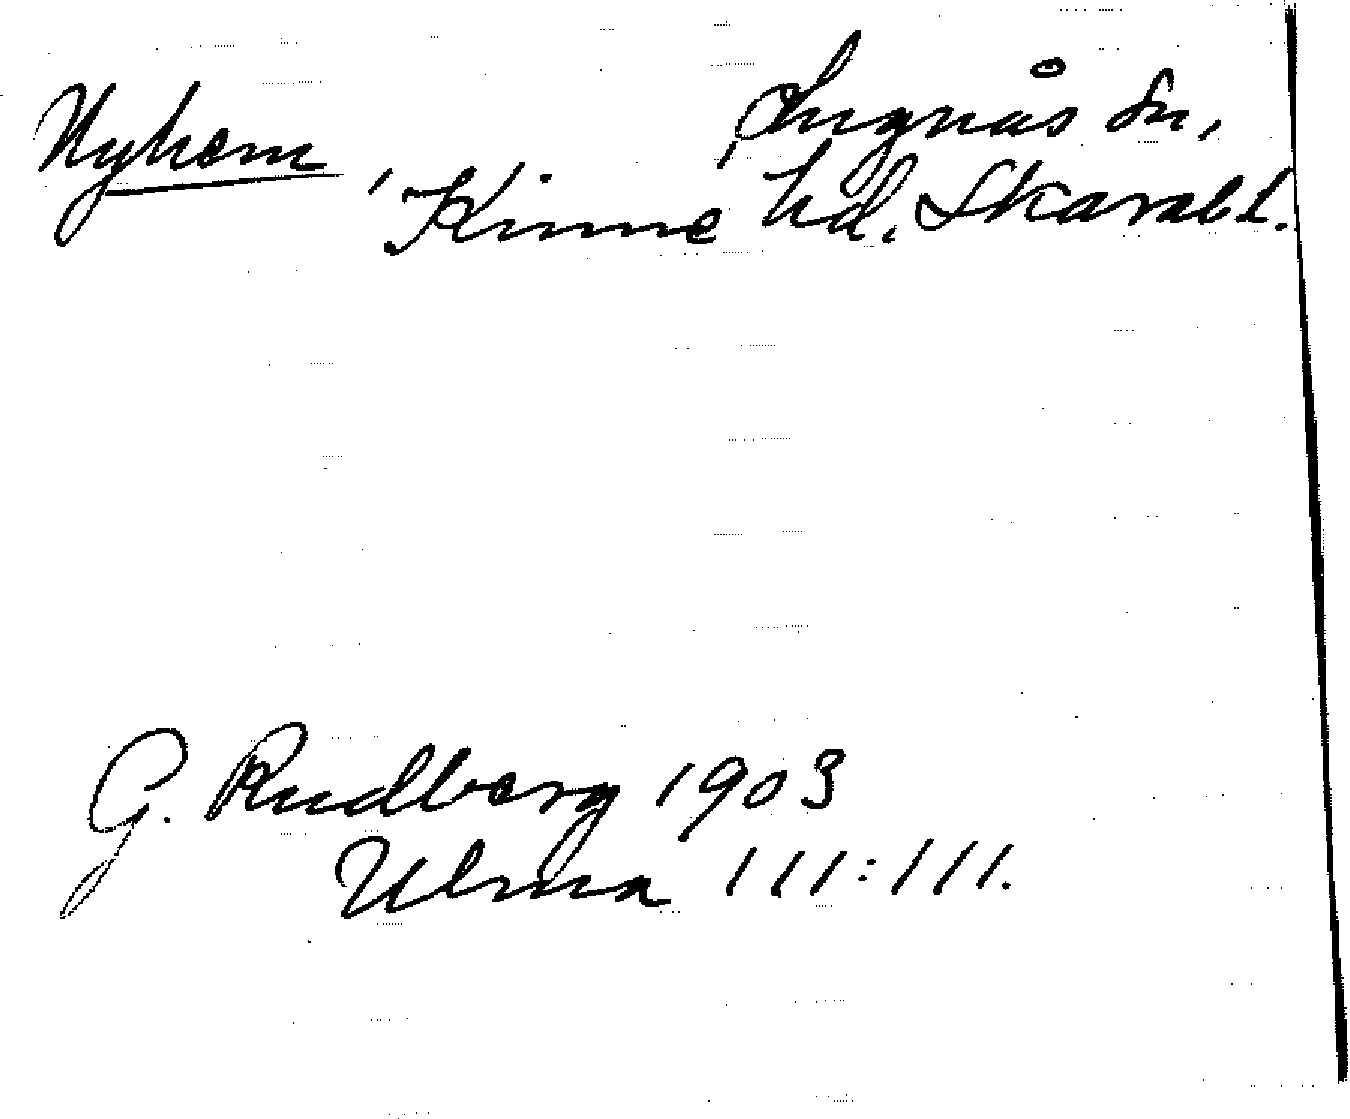 Nyhem, Lugnås sn,
Kinne hd. Skarabl.
G. Rudberg 1903
Ulma 111:111.